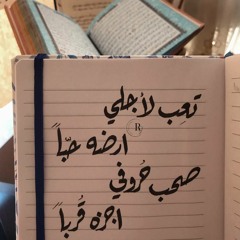 تعِب لأجلي
R
ارضه حبّاً
صحب حُروفي
اجزه قُرباً